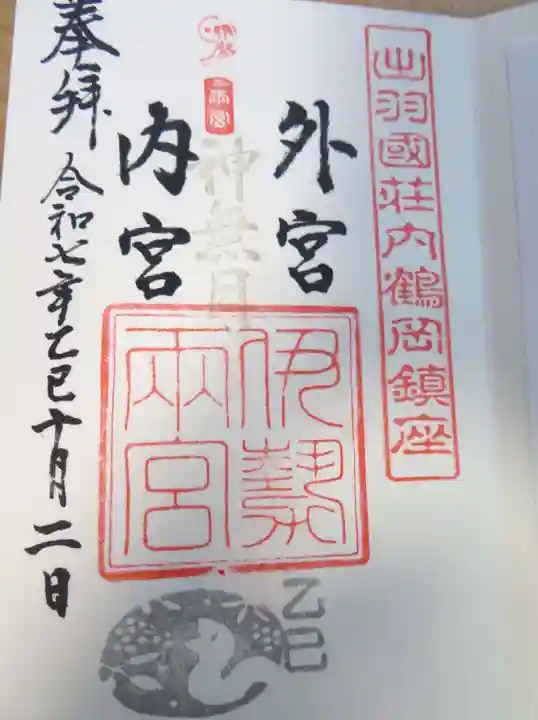 出羽國荘内鶴岡鎮座
外宮
神無月
両宮
内宮
伊勢
兩宮
奉拜
令和七年乙巳十月二日
乙巳